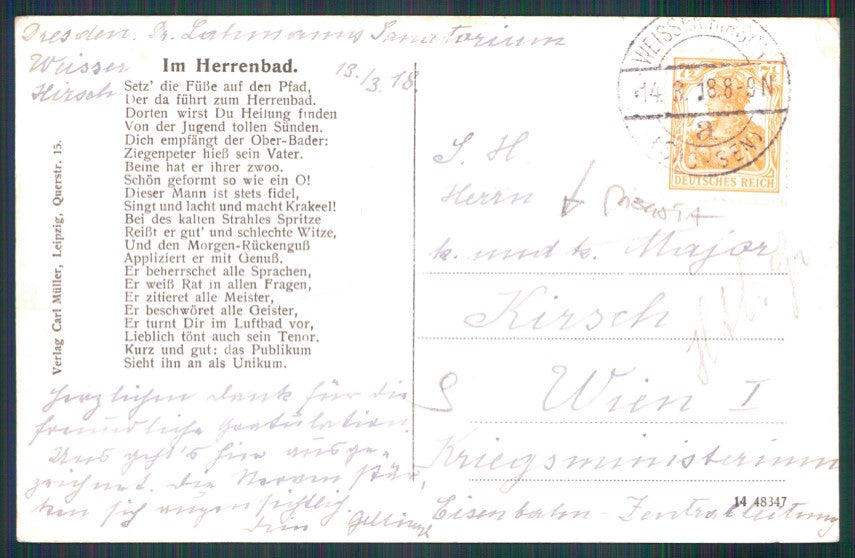 Dresden. Dr. Lahmanns Sanatorium
Weisser
Hirsch
13./3.18.
Im Herrenbad.
Setz' die Füße auf den Pfad,
Der da führt zum Herrenbad.
Dorten wirst Du Heilung finden
Von der Jugend tollen Sünden.
Dich empfängt der Ober-Bader:
Ziegenpeter hieß sein Vater.
Beine hat er ihrer zwoo.
Schön geformt so wie ein O!
Dieser Mann ist stets fidel,
Singt und lacht und macht Krakeel!
Bei des kalten Strahles Spritze
Reißt er gut' und schlechte Witze,
Und den Morgen-Rückenguß
Appliziert er mit Genuß.
Er beherrschet alle Sprachen,
Er weiß Rat in allen Fragen,
Er zitieret alle Meister,
Er beschwöret alle Geister,
Er turnt Dir im Luftbad vor,
Lieblich tönt auch sein Tenor.
Kurz und gut: das Publikum
Sieht ihn an als Unikum.
Verlag Carl Müller, Leipzig, Querstr. 15.
Herzlichen Dank für die
freundliche Gratulation.
Uns geht's hier ausge-
zeichnet. Die Nerven stär-
ken sich augensichtlich.
Dein
WEISSER HIRSCH
14.3.18.8-9N
a
(SACHSEN)
7½
DEUTSCHES REICH
S. H.
Herrn
k. und k. Major
Kirsch
Wien I
Kriegsministerium
Eisenbahn-Zentralleitung
14 48347